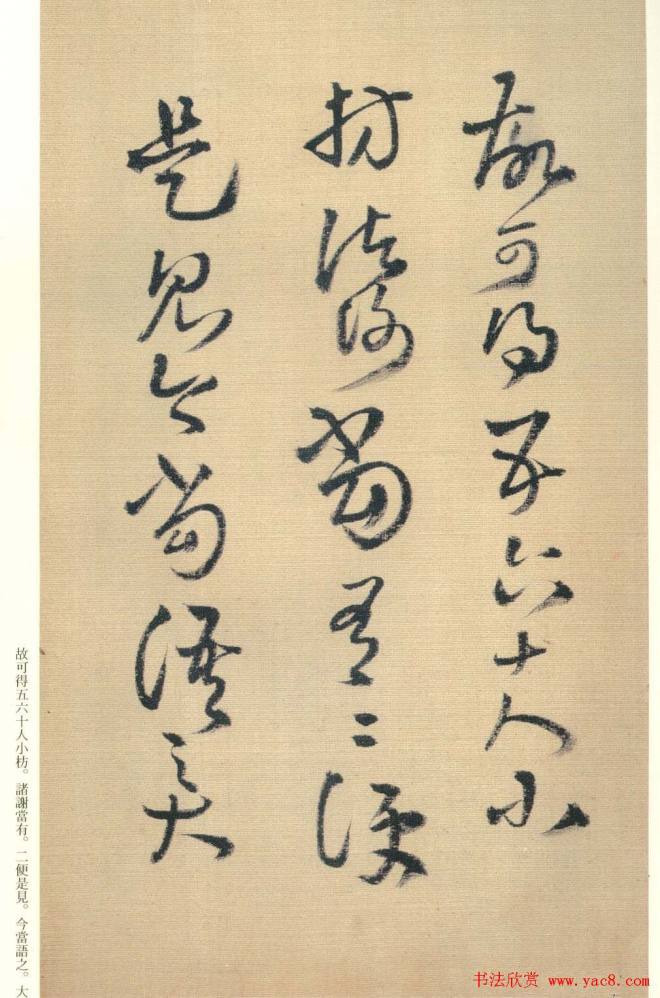 故可得五六十人小
枋諸謝當有二便
是見今當語之大
故可得五六十人小枋。諸謝當有。二便是見。今當語之。大
书法欣赏 www.yac8.com